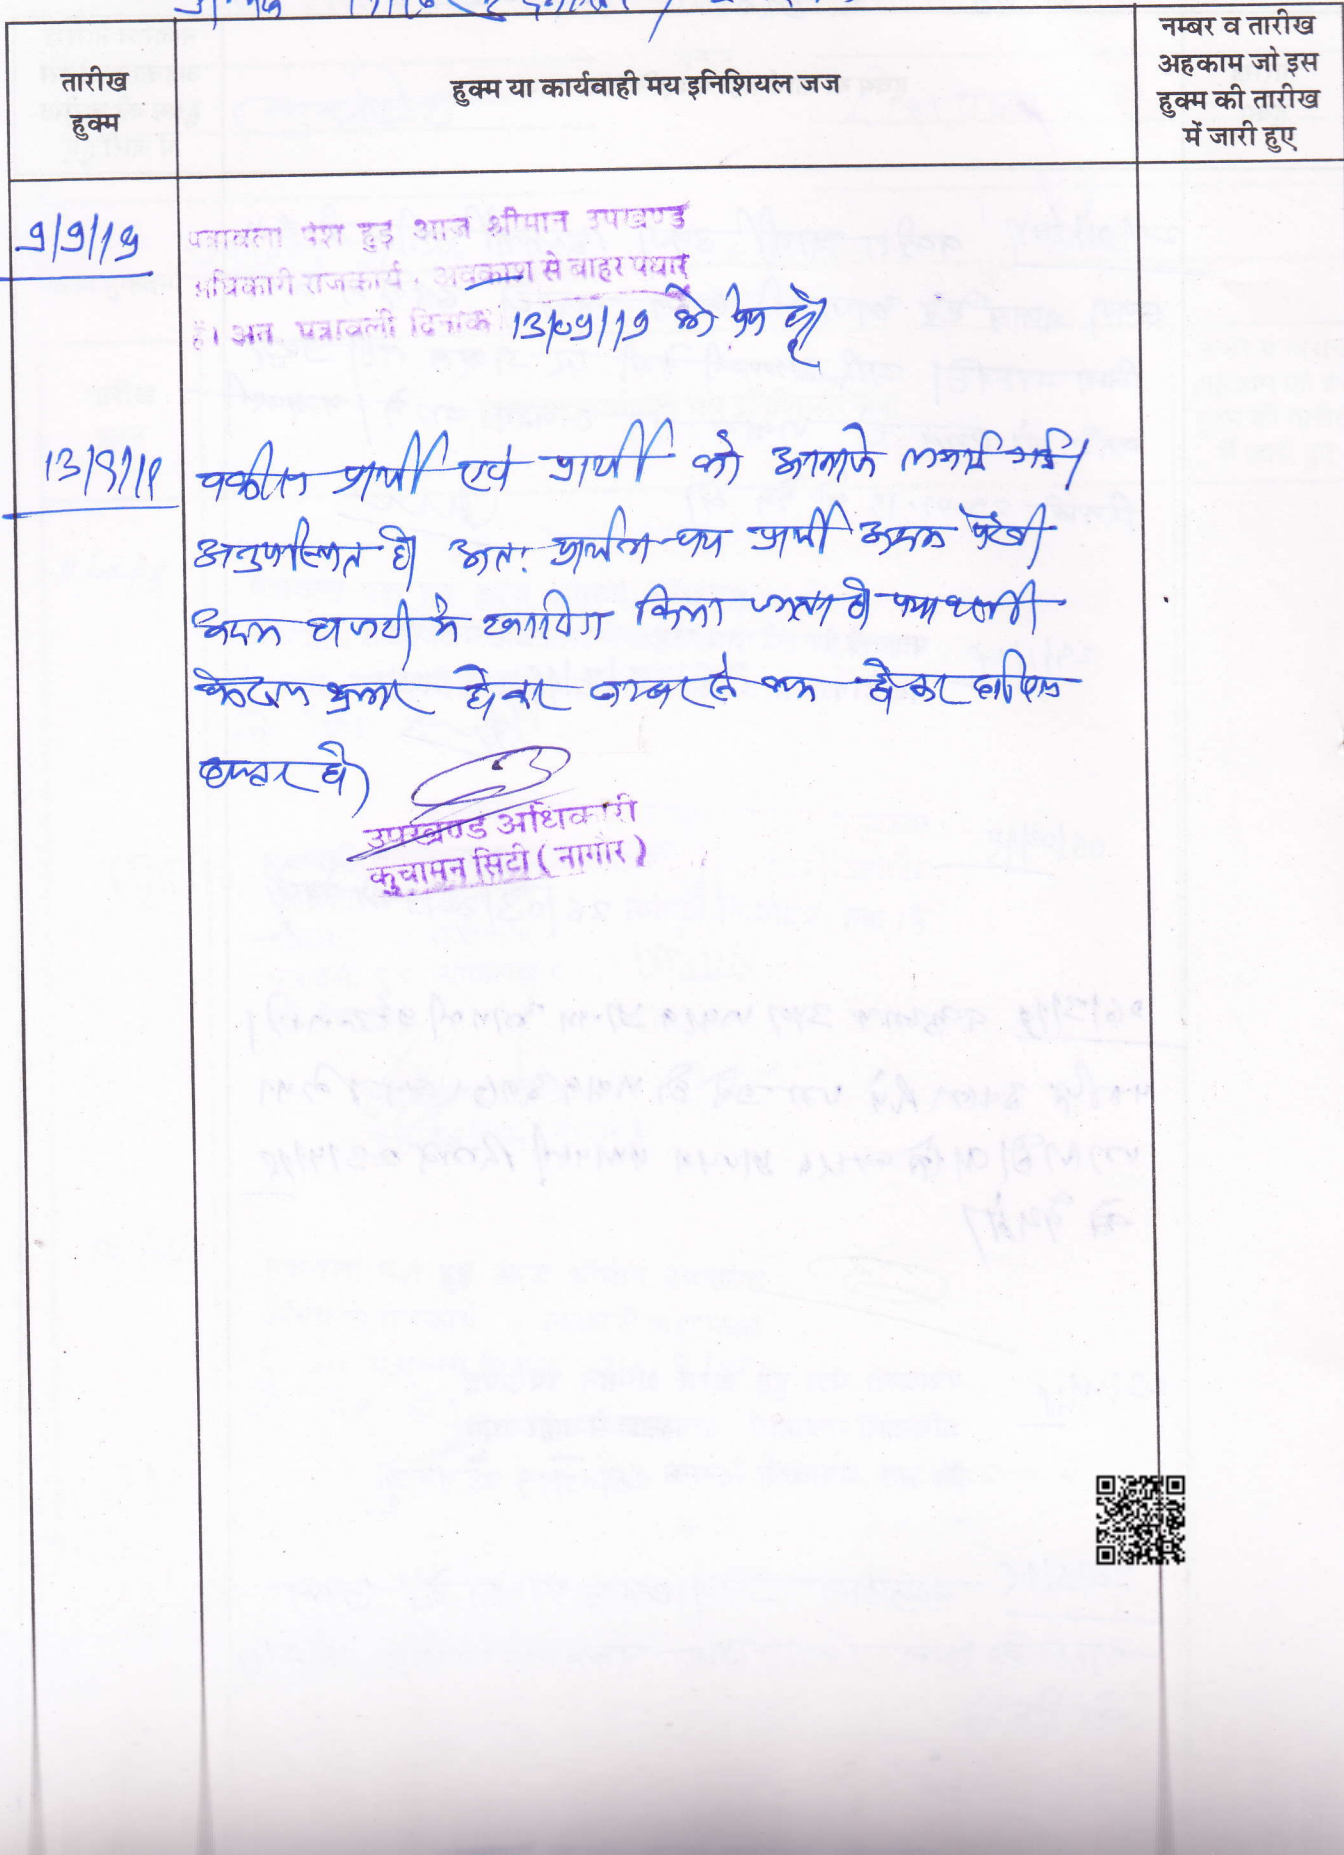 तारीख
हुक्म
हुक्म या कार्यवाही मय इनिशियल जज
नम्बर व तारीख
अहकाम जो इस
हुक्म की तारीख
में जारी हुए
9/9/19
पत्रावली पेश हुई आज श्रीमान उपखण्ड
अधिकारी राजकार्य, अवकाश से बाहर पधारे
है। अत. पत्रावली दिनांक 13/09/19 को पेश हो
13/9/19
वकील प्रार्थी एवं प्रार्थी को आवाजे लगाई गई।
अनुपस्थित है। अतः प्रार्थना पत्र प्रार्थी अदम पैरवी
अदम हाजरी में खारिज किया जाता है पत्रावली
फैसल शुमार होकर नम्बर से कम होकर दाखिल
दफ्तर हो।
उपखण्ड अधिकारी
कुचामन सिटी (नागौर)